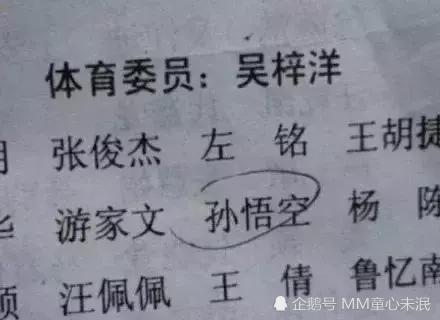 体育委员：吴梓洋
张俊杰 左 铭 王胡捷
游家文 孙悟空 杨 陈
汪佩佩 王 倩 鲁忆南
企鹅号 MM童心未泯